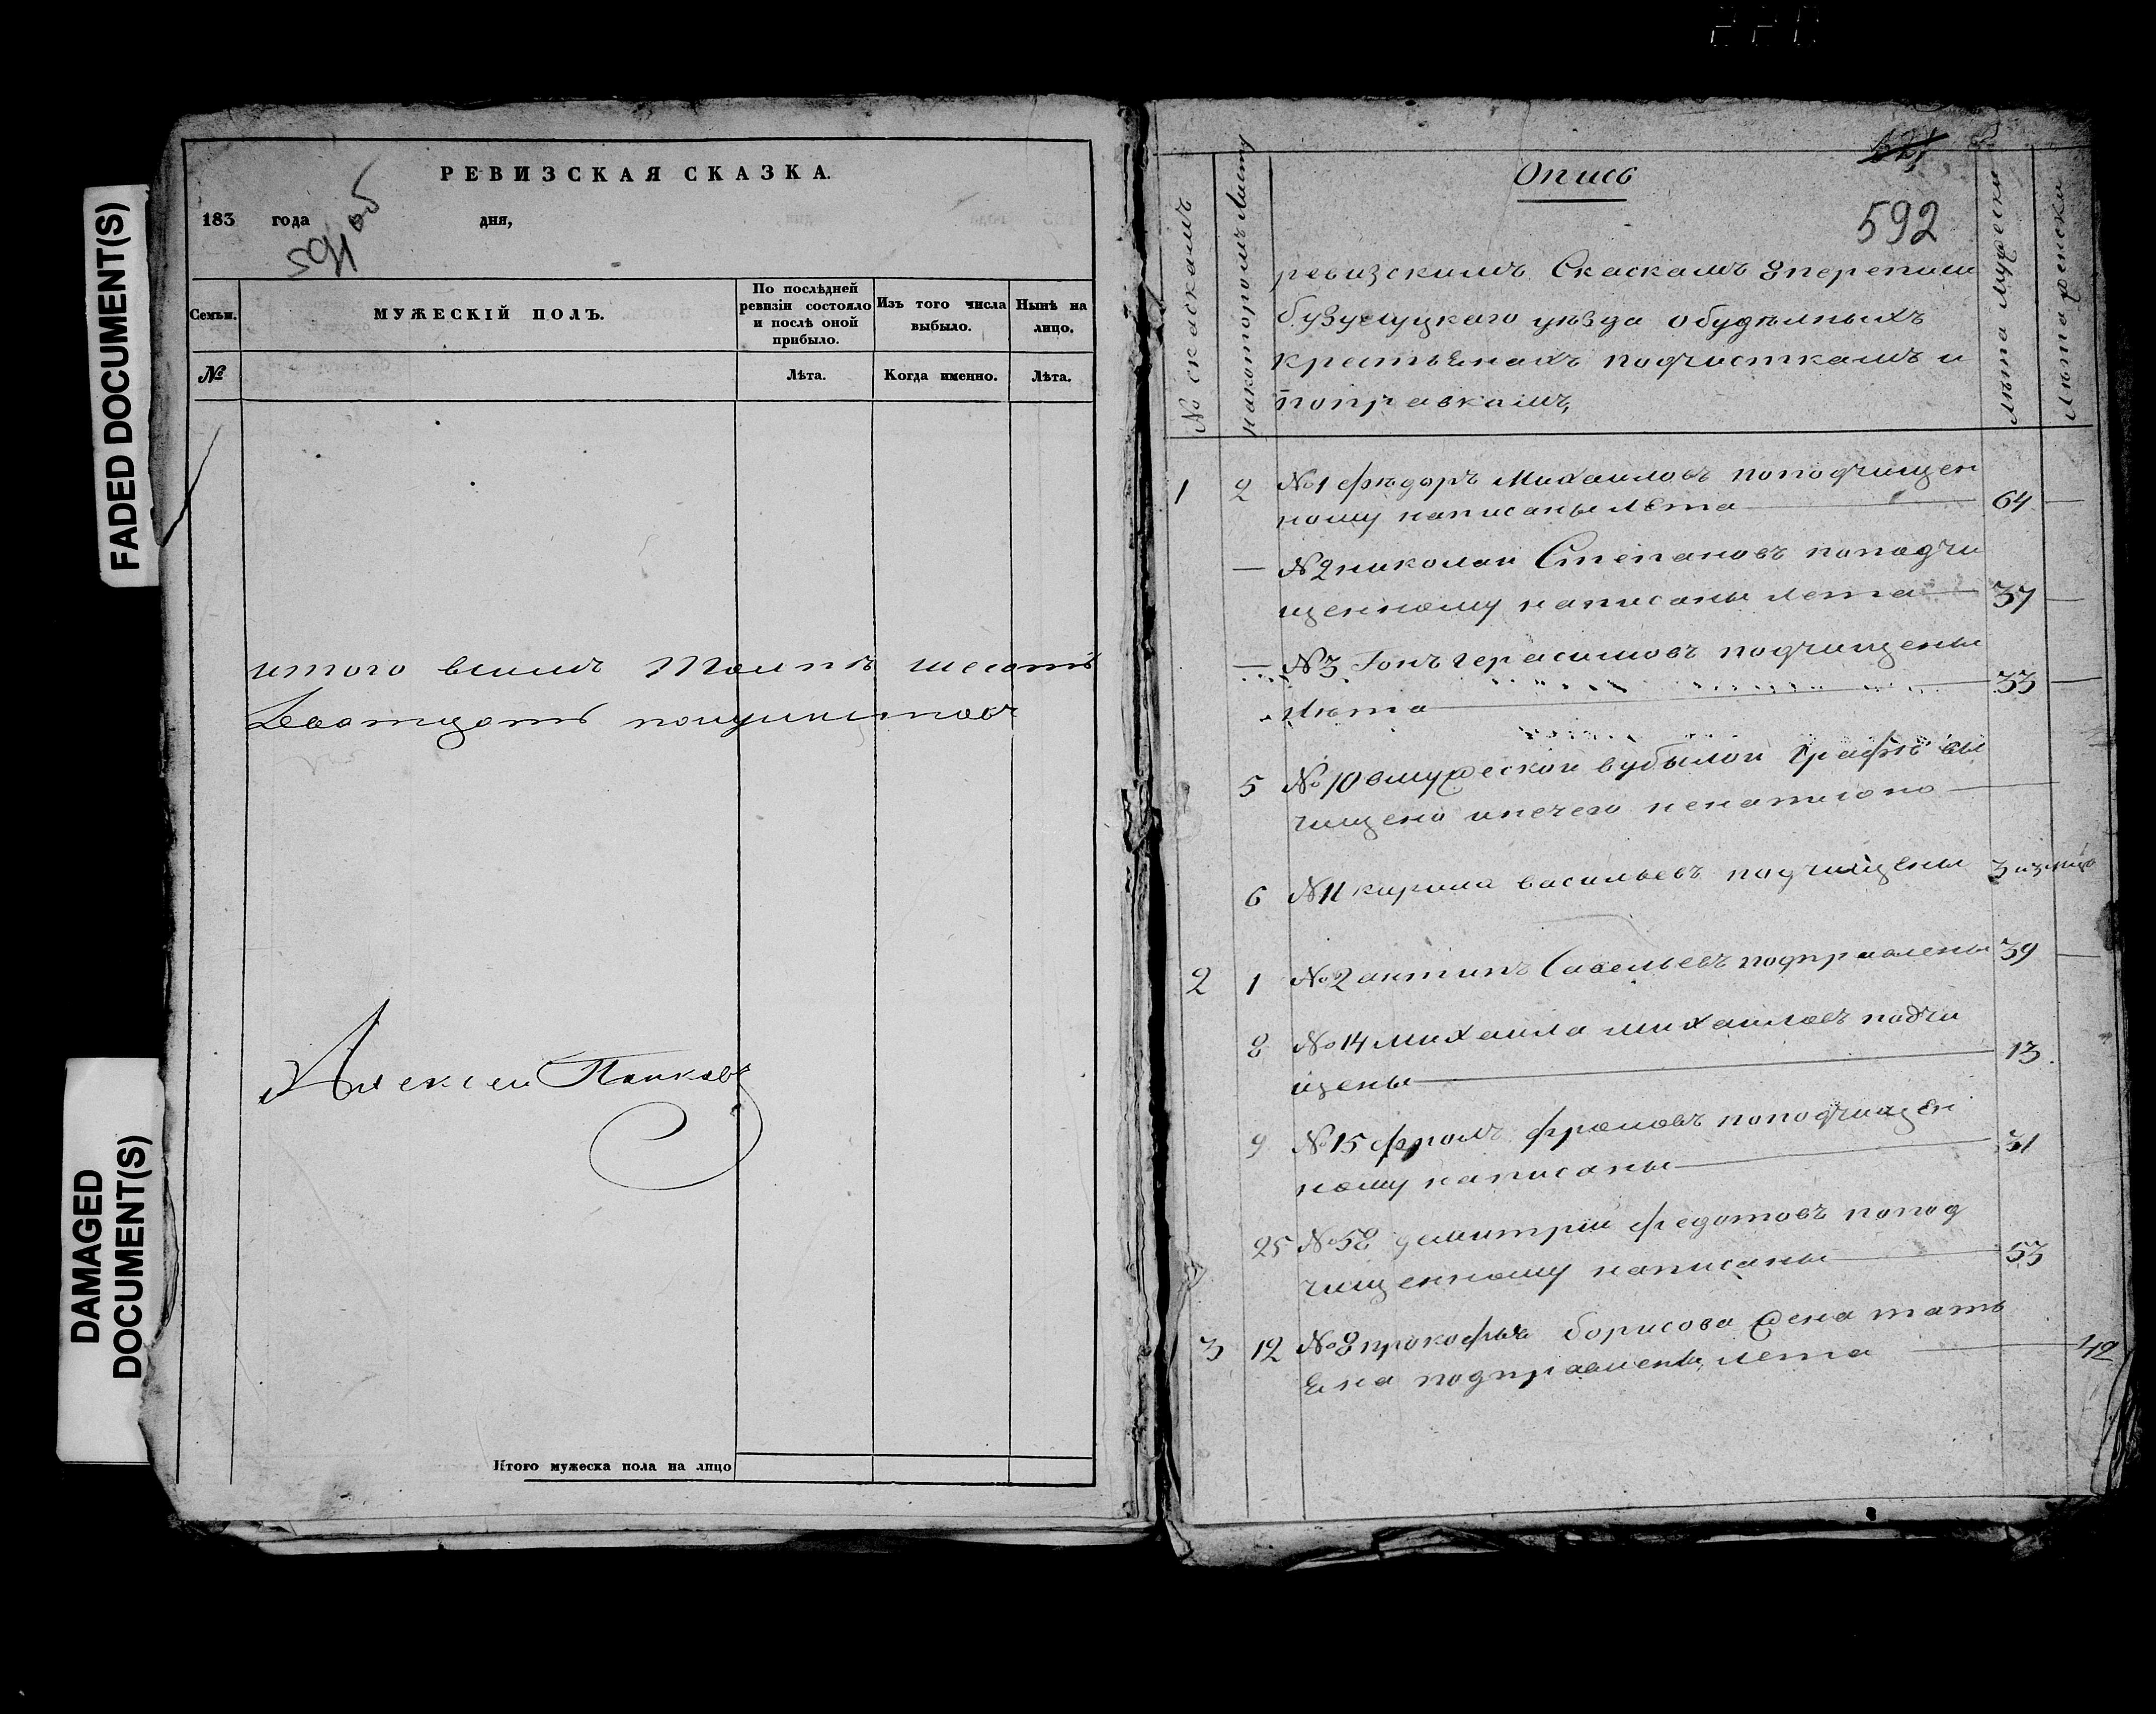 FADED DOCUMENT(S)
DAMAGED
DOCUMENT(S)
РЕВИЗСКАЯ СКАЗКА.
183 года дня,
591 об
Семьи.
МУЖЕСКІЙ ПОЛЪ.
По послѣдней
ревизіи состояло
и послѣ оной
прибыло.
Изъ того числа
выбыло.
Нынѣ на
лицо.
№
Лѣта.
Когда именно.
Лѣта.
итого
Алексей
Итого мужеска пола на лицо
Опись
592
№ скаскамъ
накоторомъ листу
лѣта мужески
лѣта женски
ревизскимъ Скаскамъ 8 переписи
бузулуцкаго уѣзда обудѣлныхъ
крестьянахъ подчисткамъ и
поправкамъ,
1 2 №1 фѣдоръ Михаиловъ поподчищен
ному написаны лѣта 64
№2 николаи Степановъ поподчи
щенному написаны лета 37
№3 Гонъ герасимовъ подчищены
лѣта 33
5 №10 вмужеской вубылои графѣ вы
чищено иничего ненаписано
6 №11 кирила васильевъ подчищены
2 1 №2 антипъ Савельевъ подправлены 39
8 №14 михаила михаиловъ подчи
щены 13
9 №15 фролъ фроловъ поподчищен
ному написаны 31
25 №58 демитрии федотовъ попод
чищенному написаны 53
3 12 №8 прокофья борисова жена тать
яна подправлены лета 42